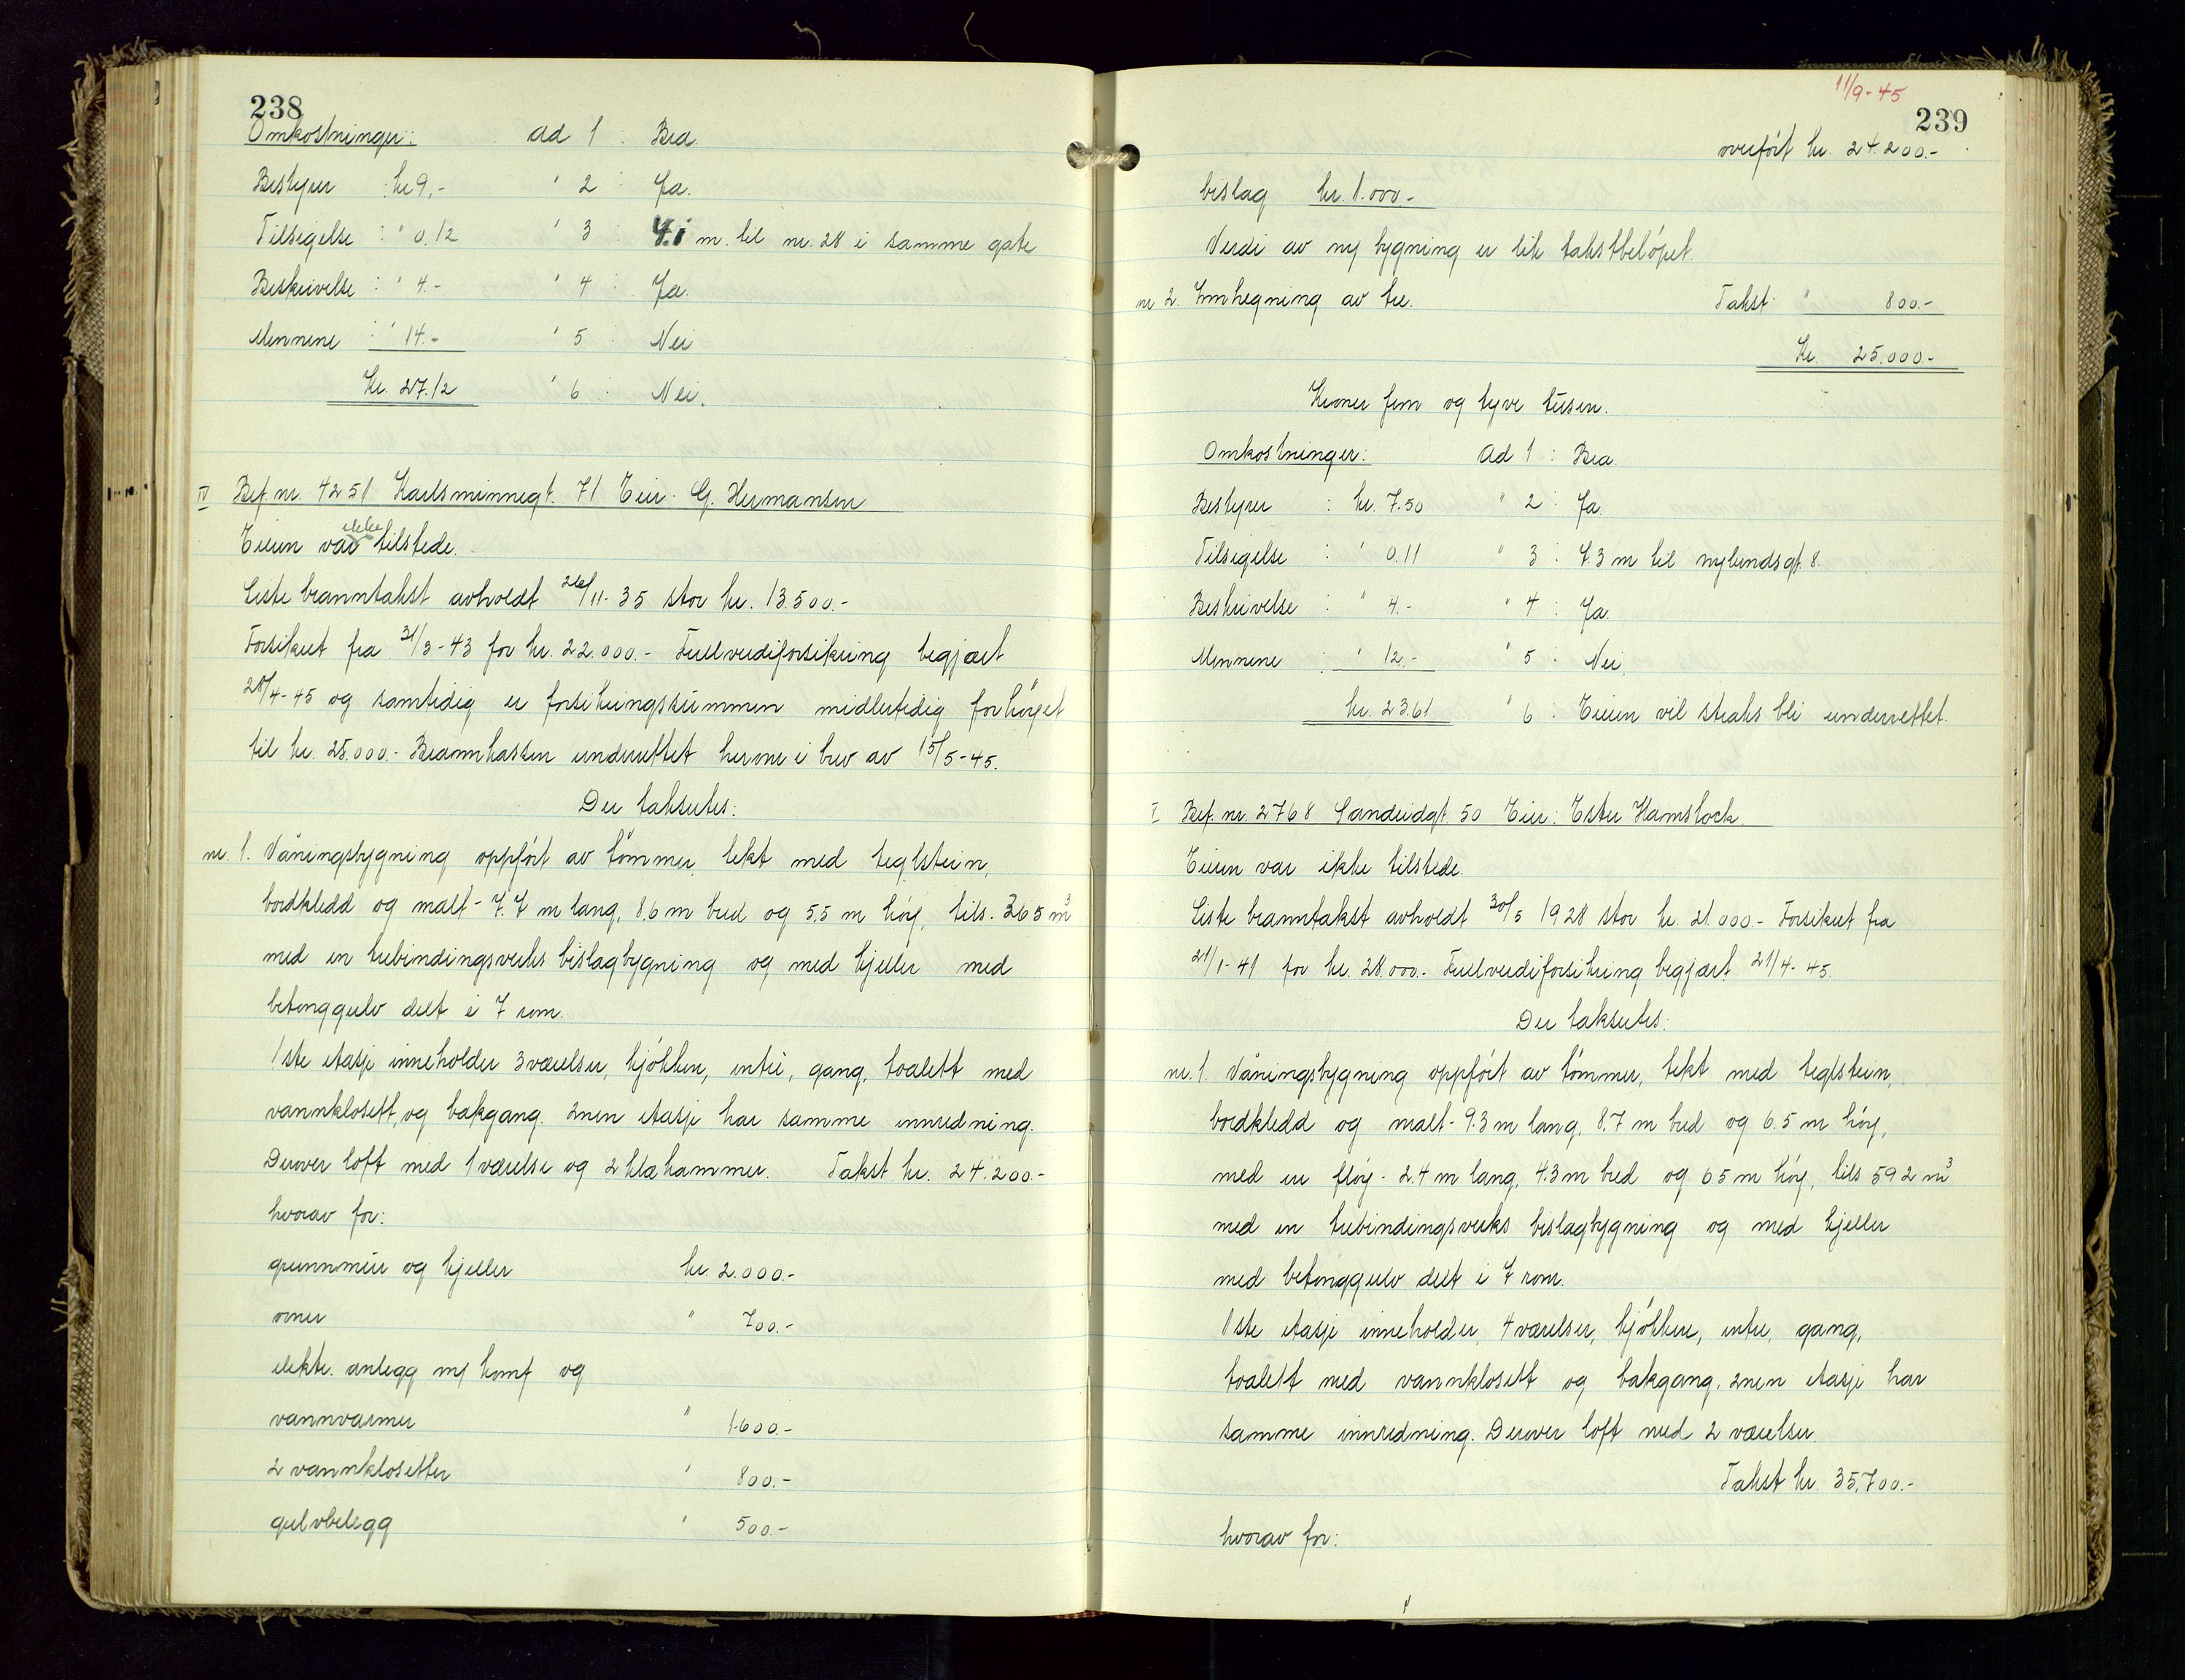 238
Omkostninger: Ad 1 : Bra.
Bestyrer : kr 9,- " 2 : Ja.
Tilsigelse : " 0.12 " 3 : 4.1 m. til nr. 28 i samme gate
Beskrivelse : " 4.- " 4 : Ja.
Mennene : " 14.- " 5 : Nei
Kr. 27.12 " 6 : Nei.
IV Bef. nr. 4251 Karlsminnegt. 71 Eier: G. Hermansen
Eieren var ikke tilstede.
Siste branntakst avholdt 26/11-35 stor kr. 13.500.-
Forsikret fra 31/3-43 for kr. 22.000.- Fullverdiforsikring begjært
28/4-45 og samtidig er forsikringssummen midlertidig forhöyet
til kr. 25.000.- Brannkassen underrettet herom i brev av 15/5-45.
Der taksertes:
nr. 1. Våningsbygning oppfört av tömmer, tekt med teglstein,
bordkledd og malt - 7.7 m lang, 8,6 m bred og 5,5 m höy, tils. 365 m3
med en trebindingsverks bislagbygning og med kjeller med
betonggulv delt i 7 rom.
1ste etasje inneholder 3 værelser, kjökken, entré, gang, toalett med
vannklosett, og bakgang. 2nen etasje har samme innredning.
Derover loft med 1 værelse og 2 klækammer. Takst kr. 24.200.-
hvorav for:
grunnmur og kjeller kr. 2.000.-
ovner " 700.-
elektr. anlegg m/ komf og
vannvarmer " 1.600.-
2 vannklosetter " 800.-
gulvbelegg " 500.-
11/9-45
239
overfört kr. 24.200.-
bislag kr. 1.000.-
Verdi av ny bygning er lik takstbelöpet.
nr 2. Innhegning av tre. Takst " 800.-
Kr. 25.000.-
Kroner fem og tyve tusen.
Omkostninger: Ad 1 : Bra.
Bestyrer : kr. 7.50 " 2 : Ja.
Tilsigelse : " 0.11 " 3 : 7.3 m til nylundsgt. 8.
Beskrivelse : " 4.- " 4 : Ja
Mennene : " 12.- " 5 : Nei.
kr. 23.61 " 6 : Eieren vil straks bli underrettet.
V Bef. nr. 2768 Sandeidgt. 50 Eier: Ester Hamstock.
Eieren var ikke tilstede.
Siste branntakst avholdt 30/5 1928 stor kr. 21.000.- Forsikret fra
21/1-41 for kr. 28.000.- Fullverdiforsikring begjært 21/4-45.
Der taksertes:
nr. 1. Våningsbygning oppfört av tömmer, tekt med teglstein,
bordkledd og malt - 9.3 m lang, 8.7 m bred og 6.5 m höy,
med en flöy - 2.4 m lang, 4.3 m bred og 6.5 m höy, tils 592 m3
med en trebindingsverks bislagbygning og med kjeller
med betonggulv delt i 7 rom.
1ste etasje inneholder 4 værelser, kjökken, entre, gang,
toalett med vannklosett og bakgang. 2nen etasje har
samme innredning. Derover loft med 2 værelser.
Takst kr. 35.700.-
hvorav for: